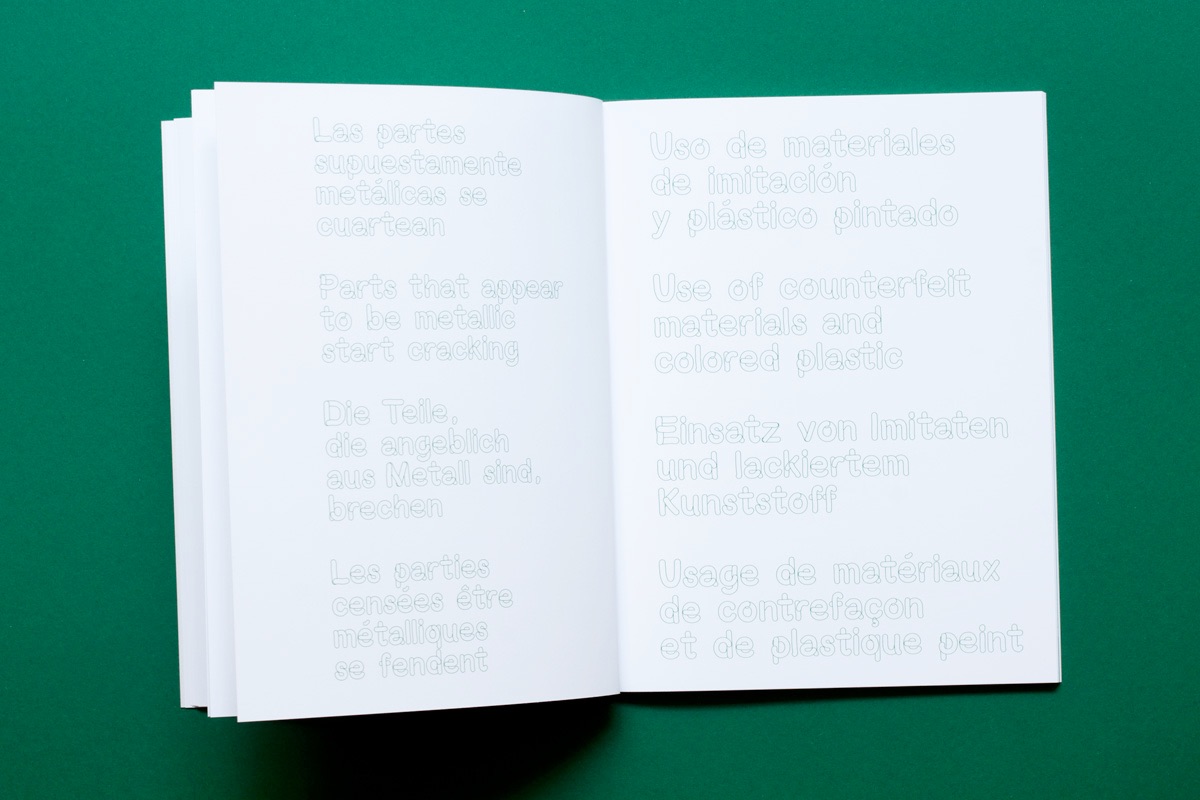 Las partes
supuestamente
metálicas se
cuartean
Parts that appear
to be metallic
start cracking
Die Teile,
die angeblich
aus Metall sind,
brechen
Les parties
censées être
métalliques
se fendent
Uso de materiales
de imitación
y plástico pintado
Use of counterfeit
materials and
colored plastic
Einsatz von Imitaten
und lackiertem
Kunststoff
Usage de matériaux
de contrefaçon
et de plastique peint